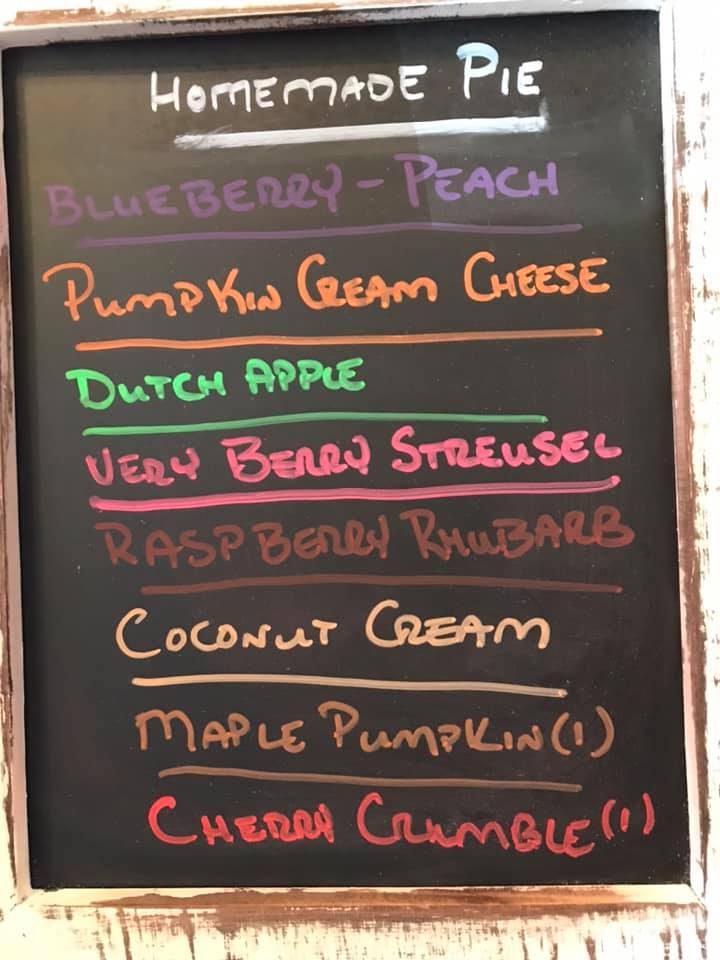 HOMEMADE PIE
BLUEBERRY - PEACH
PUMPKIN CREAM CHEESE
DUTCH APPLE
VERY BERRY STREUSEL
RASPBERRY RHUBARB
COCONUT CREAM
MAPLE PUMPKIN (1)
CHERRY CRUMBLE (1)